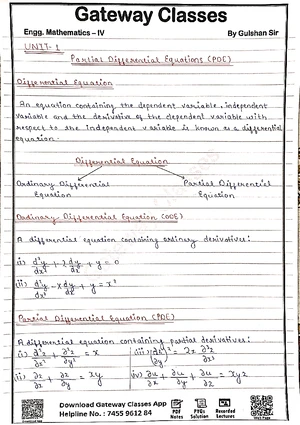 Gateway Classes
Engg. Mathematics – IV By Gulshan Sir
UNIT-1
Partial Differential Equations (PDE)
Differential Equation
An equation containing the dependent variable, independent
variable and the derivative of the dependent variable with
respect to the independent variable is known as a differential
equation.
Differential Equation
Ordinary Differential Partial Differential
Equation Equation
Ordinary Differential Equation (ODE)
A differential equation containing ordinary derivatives:
(i) d²y/dx² + 2dy/dx + y = 0
(ii) d²y/dx² - x dy/dx + y = x²
Partial Differential Equation (PDE)
A differential equation containing partial derivatives:
(i) ∂²z/∂x² + ∂²z/∂y² = x
(ii) ∂z/∂x + ∂z/∂y = xy (iv) ∂u/∂x + ∂u/∂y + ∂u/∂z = xyz
Download Gateway Classes App
Helpline No. : 7455 9612 84
PDF Notes
PYQs Solution
Recorded Lectures